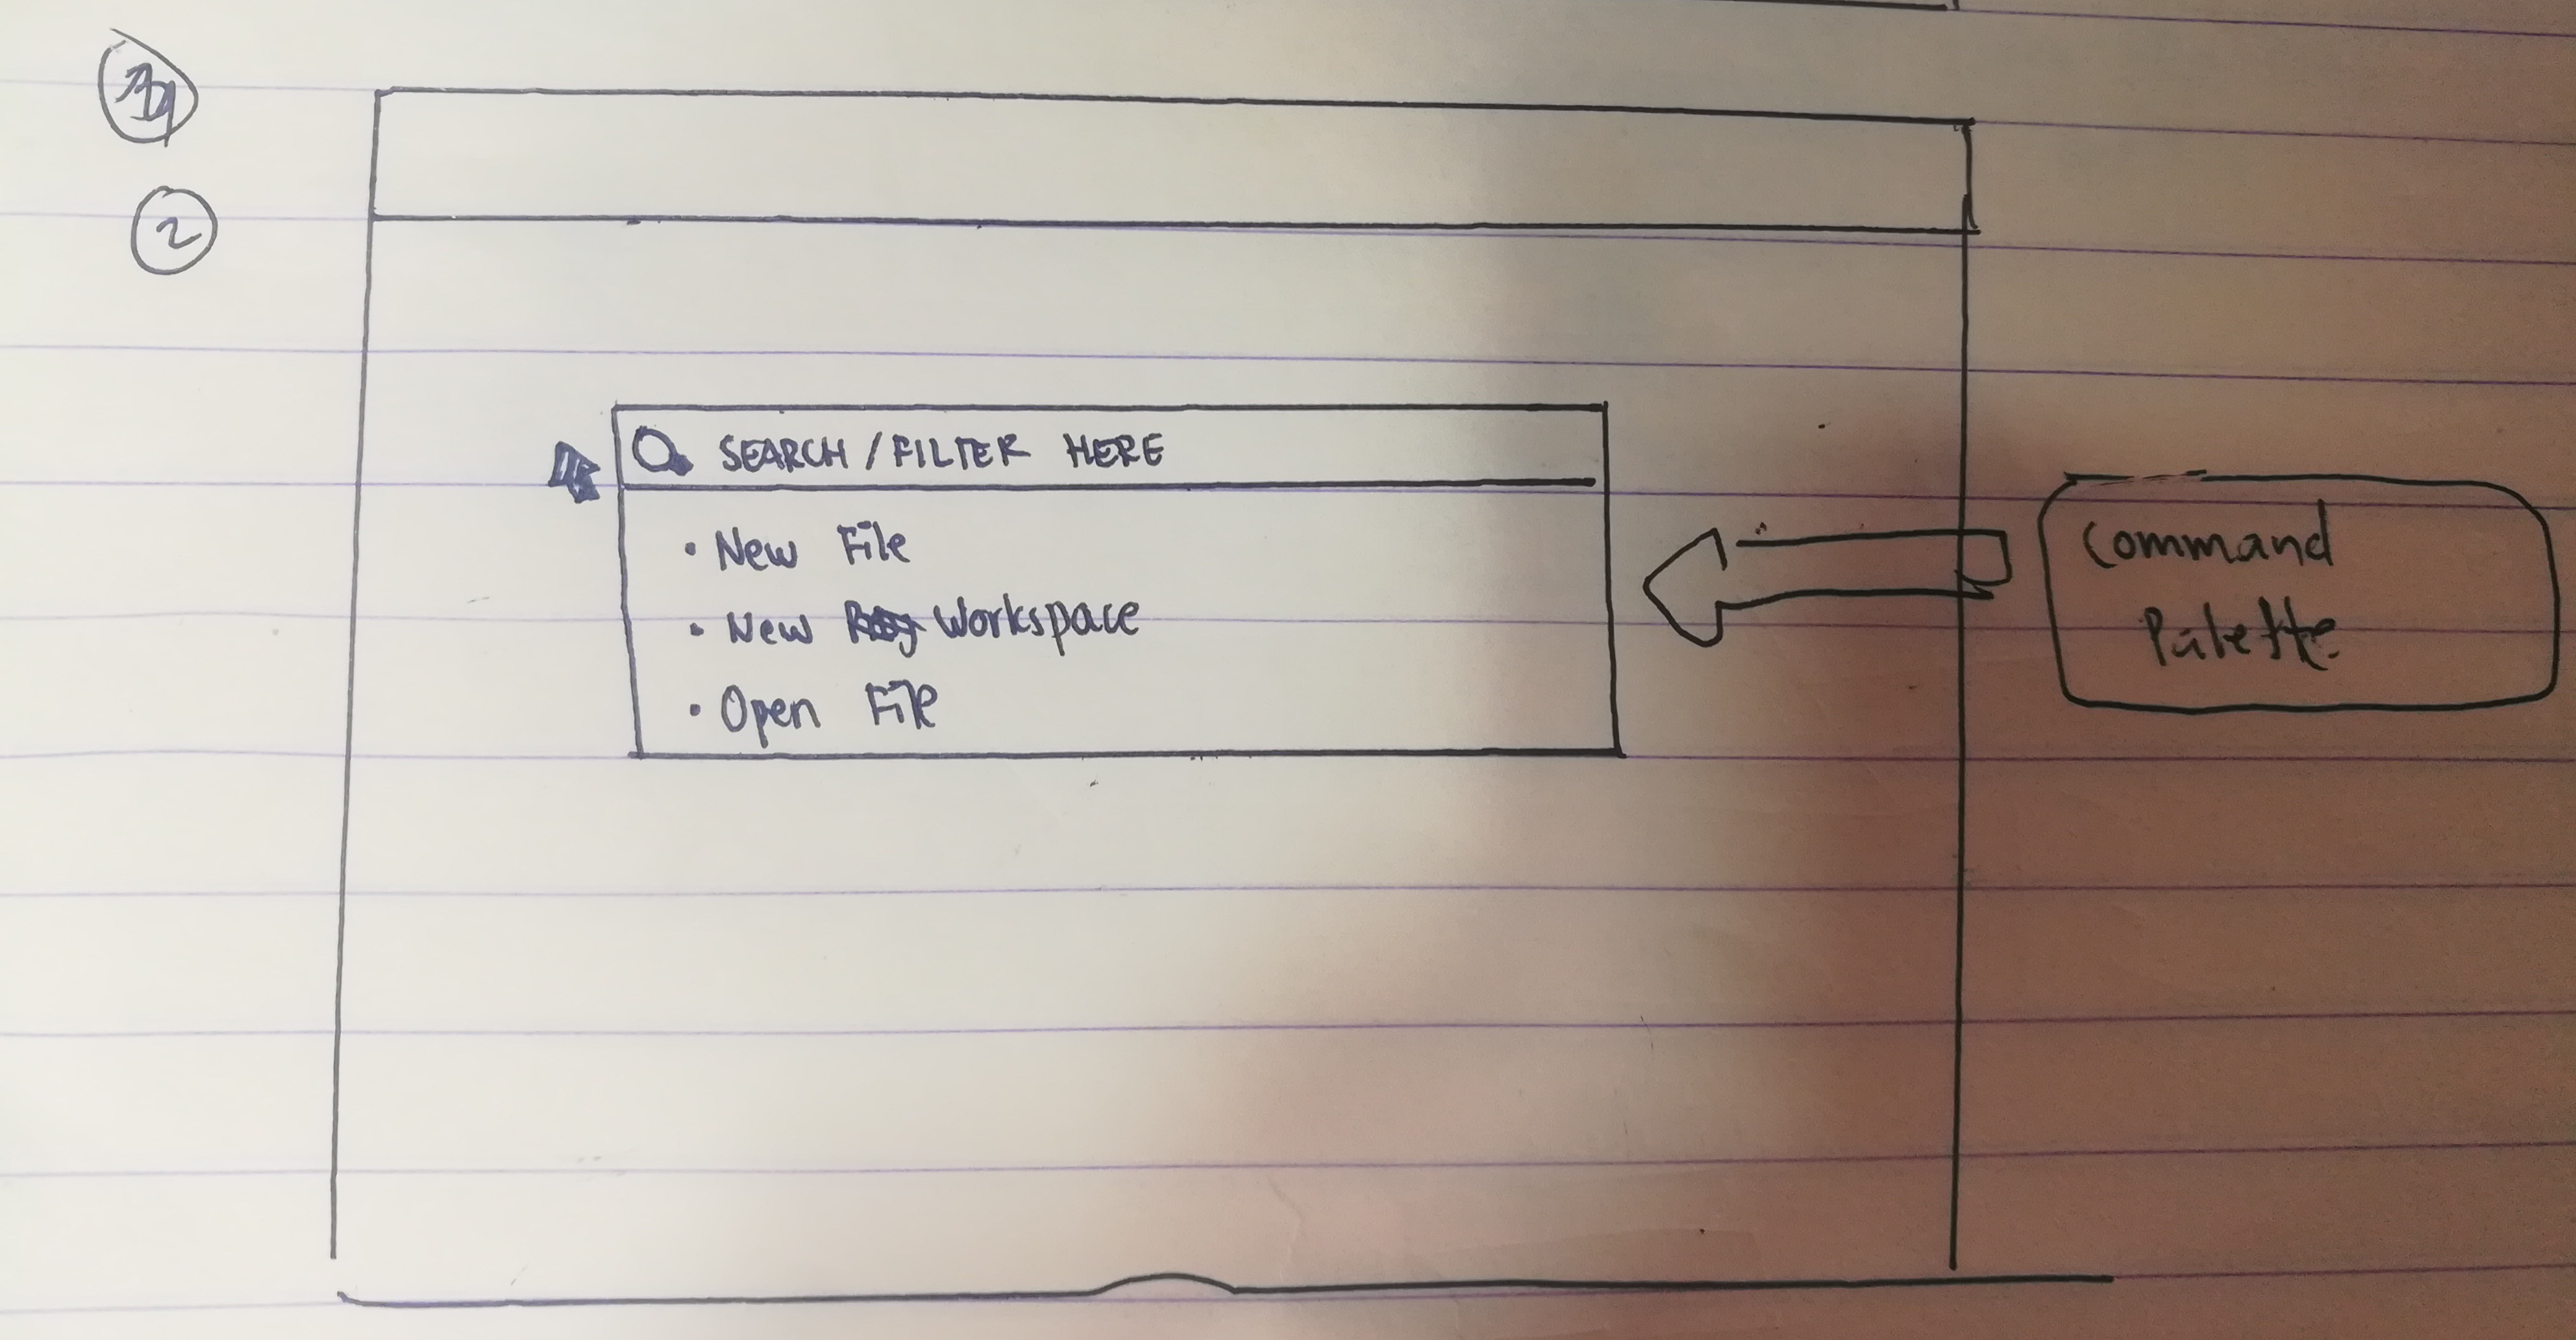 2
SEARCH / FILTER HERE
• New File
• New Workspace
• Open File
Command
Palette